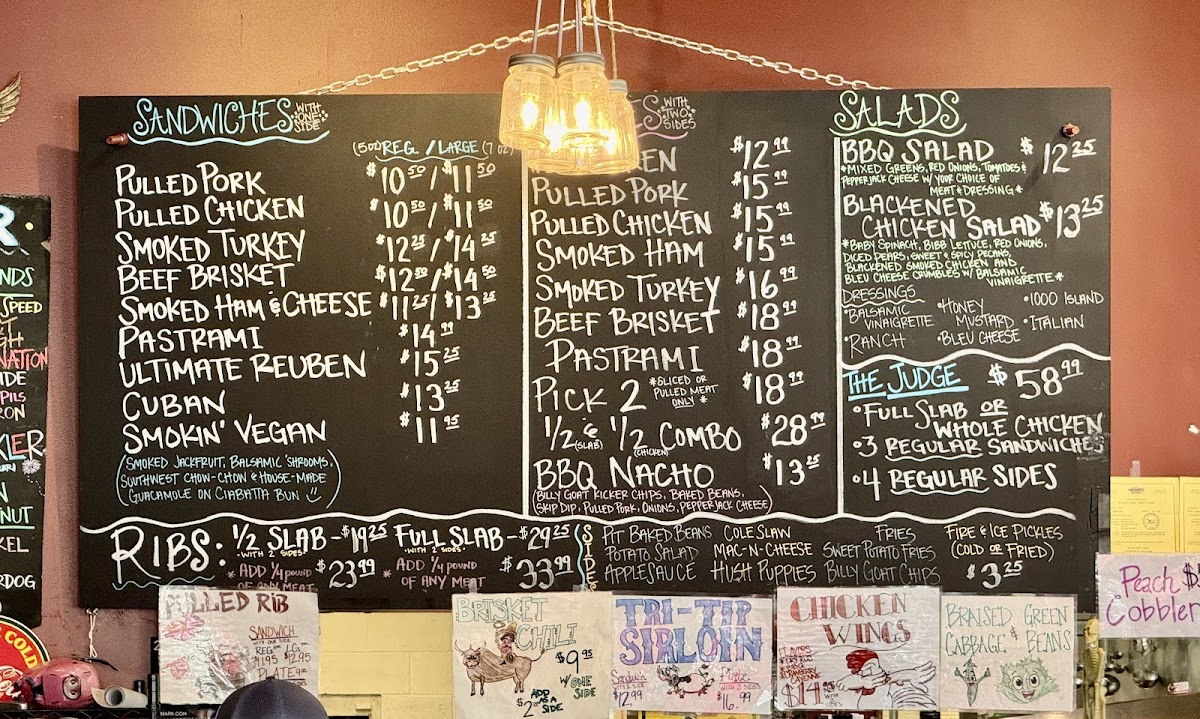 SANDWICHES WITH ONE SIDE
REG. / LARGE
PULLED PORK $10.50 / $11.50
PULLED CHICKEN $10.50 / $11.50
SMOKED TURKEY $12.25 / $14.25
BEEF BRISKET $12.50 / $14.50
SMOKED HAM & CHEESE $11.25 / $13.25
PASTRAMI $14.99
ULTIMATE REUBEN $15.25
CUBAN $13.25
SMOKIN' VEGAN $11.95
(SMOKED JACKFRUIT, BALSAMIC 'SHROOMS,
SOUTHWEST CHOW-CHOW & HOUSE-MADE
GUACAMOLE ON CIABATTA BUN
WITH TWO SIDES
$12.99
PULLED PORK $15.99
PULLED CHICKEN $15.99
SMOKED HAM $15.99
SMOKED TURKEY $16.99
BEEF BRISKET $18.99
PASTRAMI $18.99
PICK 2 *SLICED OR PULLED MEAT ONLY* $18.99
1/2 (SLAB) & 1/2 (CHICKEN) COMBO $28.99
BBQ NACHO $13.25
(BILLY GOAT KICKER CHIPS, BAKED BEANS,
SKIP DIP, PULLED PORK, ONIONS, PEPPERJACK CHEESE)
SALADS
BBQ SALAD $12.25
*MIXED GREENS, RED ONIONS, TOMATOES &
PEPPERJACK CHEESE W/ YOUR CHOICE OF
MEAT & DRESSING*
BLACKENED
CHICKEN SALAD $13.25
*BABY SPINACH, BIBB LETTUCE, RED ONIONS,
DICED PEARS, SWEET & SPICY PECANS,
BLACKENED SMOKED CHICKEN AND
BLEU CHEESE CRUMBLES W/ BALSAMIC
VINAIGRETTE*
DRESSINGS
•BALSAMIC VINAIGRETTE •HONEY MUSTARD •1000 ISLAND
•RANCH •BLEU CHEESE •ITALIAN
THE JUDGE $58.99
•FULL SLAB OR
WHOLE CHICKEN
•3 REGULAR SANDWICHES
•4 REGULAR SIDES
RIBS: 1/2 SLAB - $19.25 FULL SLAB - $29.25
•WITH 2 SIDES• •WITH 2 SIDES•
* ADD 1/4 POUND OF ANY MEAT $23.99 * ADD 1/4 POUND OF ANY MEAT $33.99
SIDES
PIT BAKED BEANS COLE SLAW FRIES FIRE & ICE PICKLES
POTATO SALAD MAC-N-CHEESE SWEET POTATO FRIES (COLD OR FRIED)
APPLESAUCE HUSH PUPPIES BILLY GOAT CHIPS $3.25
PULLED RIB
SANDWICH
WITH ONE SIDE
REG. LG.
$11.95 $12.95
PLATE
BRISKET
CHILI
$9.95
W/ ONE SIDE
ADD AS A SIDE
TRI-TIP
SIRLOIN
Sandwich
$12.99
Plate
WITH 2 SIDES
$16.99
CHICKEN
WINGS
BRAISED GREEN
CABBAGE & BEANS
Peach
Cobbler
SPEED
NUT
DOG
COLD